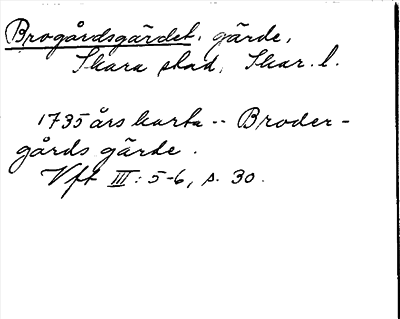 Brogårdsgärdet, gärde,
Skara stad, Skar. l.
1735 års karta -- Broder-
gårds gärde.
Vft III: 5-6, s. 30.